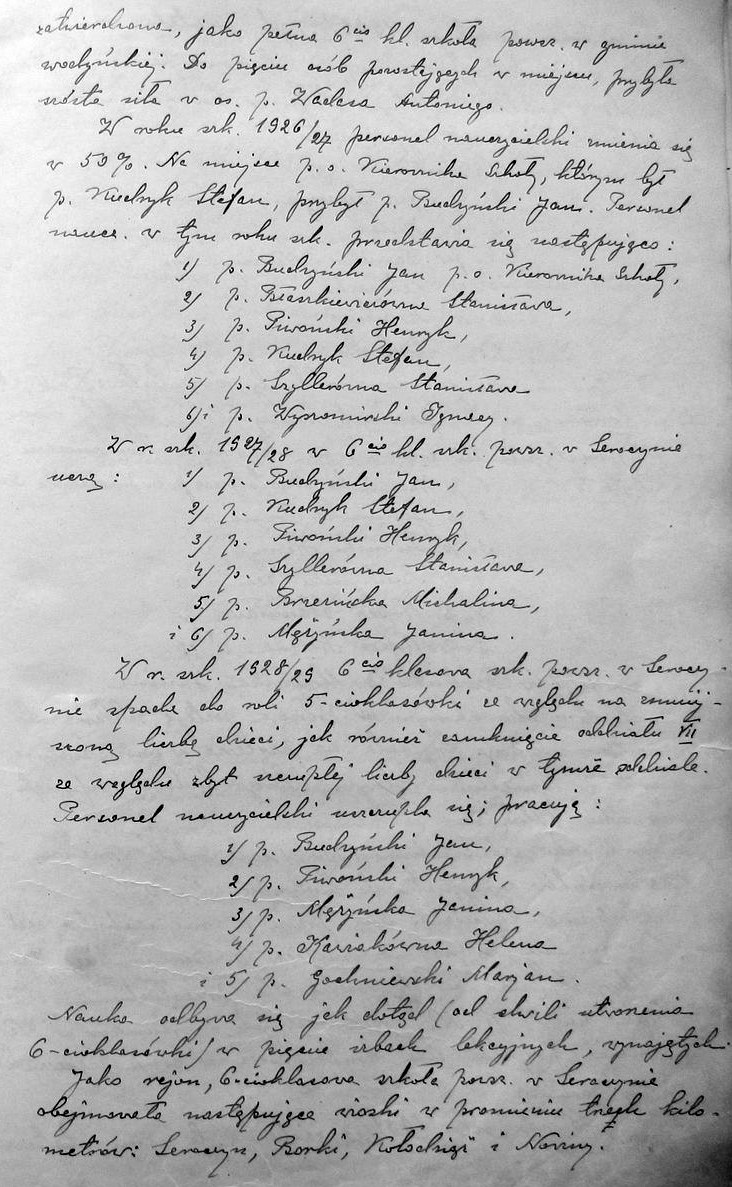 zatwierdzona, jako pełna 6 cio kl. szkoła powsz. w gminie
wodyńskiej. Do pięciu osób pozostających w miejscu, przybyła
szósta siła w os. p. Wadasa Antoniego.
W roku szk. 1926/27 personel nauczycielski zmienia się
w 50%. Na miejsce p. o. Kierownika Szkoły, którym był
p. Kudryk Stefan, przybył p. Budzyński Jan. Personel
naucz. w tym roku szk. przedstawia się następująco:
1/ p. Budzyński Jan p. o. Kierownika Szkoły,
2/ p. Błaszkiewiczówna Stanisława,
3/ p. Piwoński Henryk,
4/ p. Kudryk Stefan,
5/ p. Szyllerówna Stanisława
6/ i p. Wyszomirski Ignacy.
W r. szk. 1927/28 w 6 cio kl. szk. powsz. w Seroczynie
uczą: 1/ p. Budzyński Jan,
2/ p. Kudryk Stefan,
3/ p. Piwoński Henryk,
4/ p. Szyllerówna Stanisława,
5/ p. Brzezińska Michalina,
i 6/ p. Mężyńska Janina.
W r. szk. 1928/29 6 cio klasowa szk. powsz. w Seroczy-
nie spada do roli 5-cioklasówki ze względu na zmniej-
szoną liczbę dzieci, jak również zamknięcie oddziału VII
ze względu zbyt szczupłej liczby dzieci w tymże oddziale.
Personel nauczycielski uszczupla się; pracują:
1/ p. Budzyński Jan,
2/ p. Piwoński Henryk,
3/ p. Mężyńska Janina,
4/ p. Kawiakówna Helena
i 5/ p. Gochniewski Marjan.
Nauka odbywa się jak dotąd (od chwili utworzenia
6-cioklasówki) w pięciu izbach lekcyjnych, wynajętych.
Jako rejon, 6-cioklasowa szkoła powsz. w Seroczynie
obejmowała następujące wioski w promieniu trzech kilo-
metrów: Seroczyn, Borki, Kołodziąż i Nowiny.